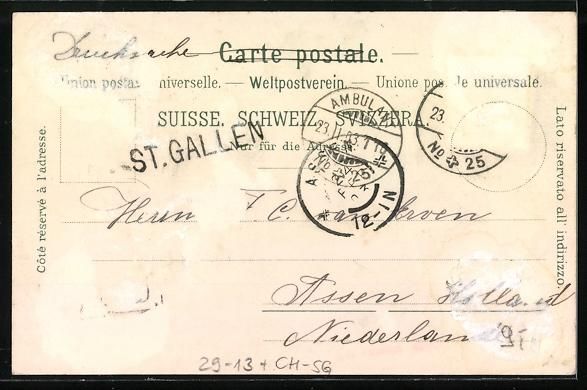 Drucksache Carte postale.
Union postale universelle. — Weltpostverein. — Unione postale universale.
SUISSE. SCHWEIZ. SVIZZERA.
Nur für die Adresse
ST. GALLEN
AMBULANT
23. VI. 03
No 25
23.
ASSEN
12-1N
Côté réservé à l'adresse.
Lato riservato all' indirizzo.
Herrn
Assen Holland
Niederland
29-13 + CH-SG